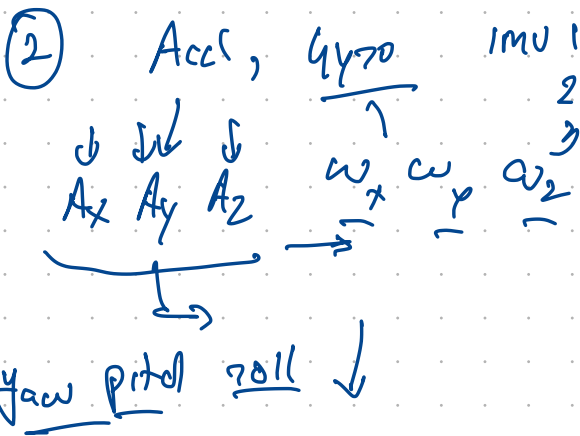 ② Acc, Gyro IMU 1
2
3
Ax Ay Az ωx ωy ωz
yaw pitch roll